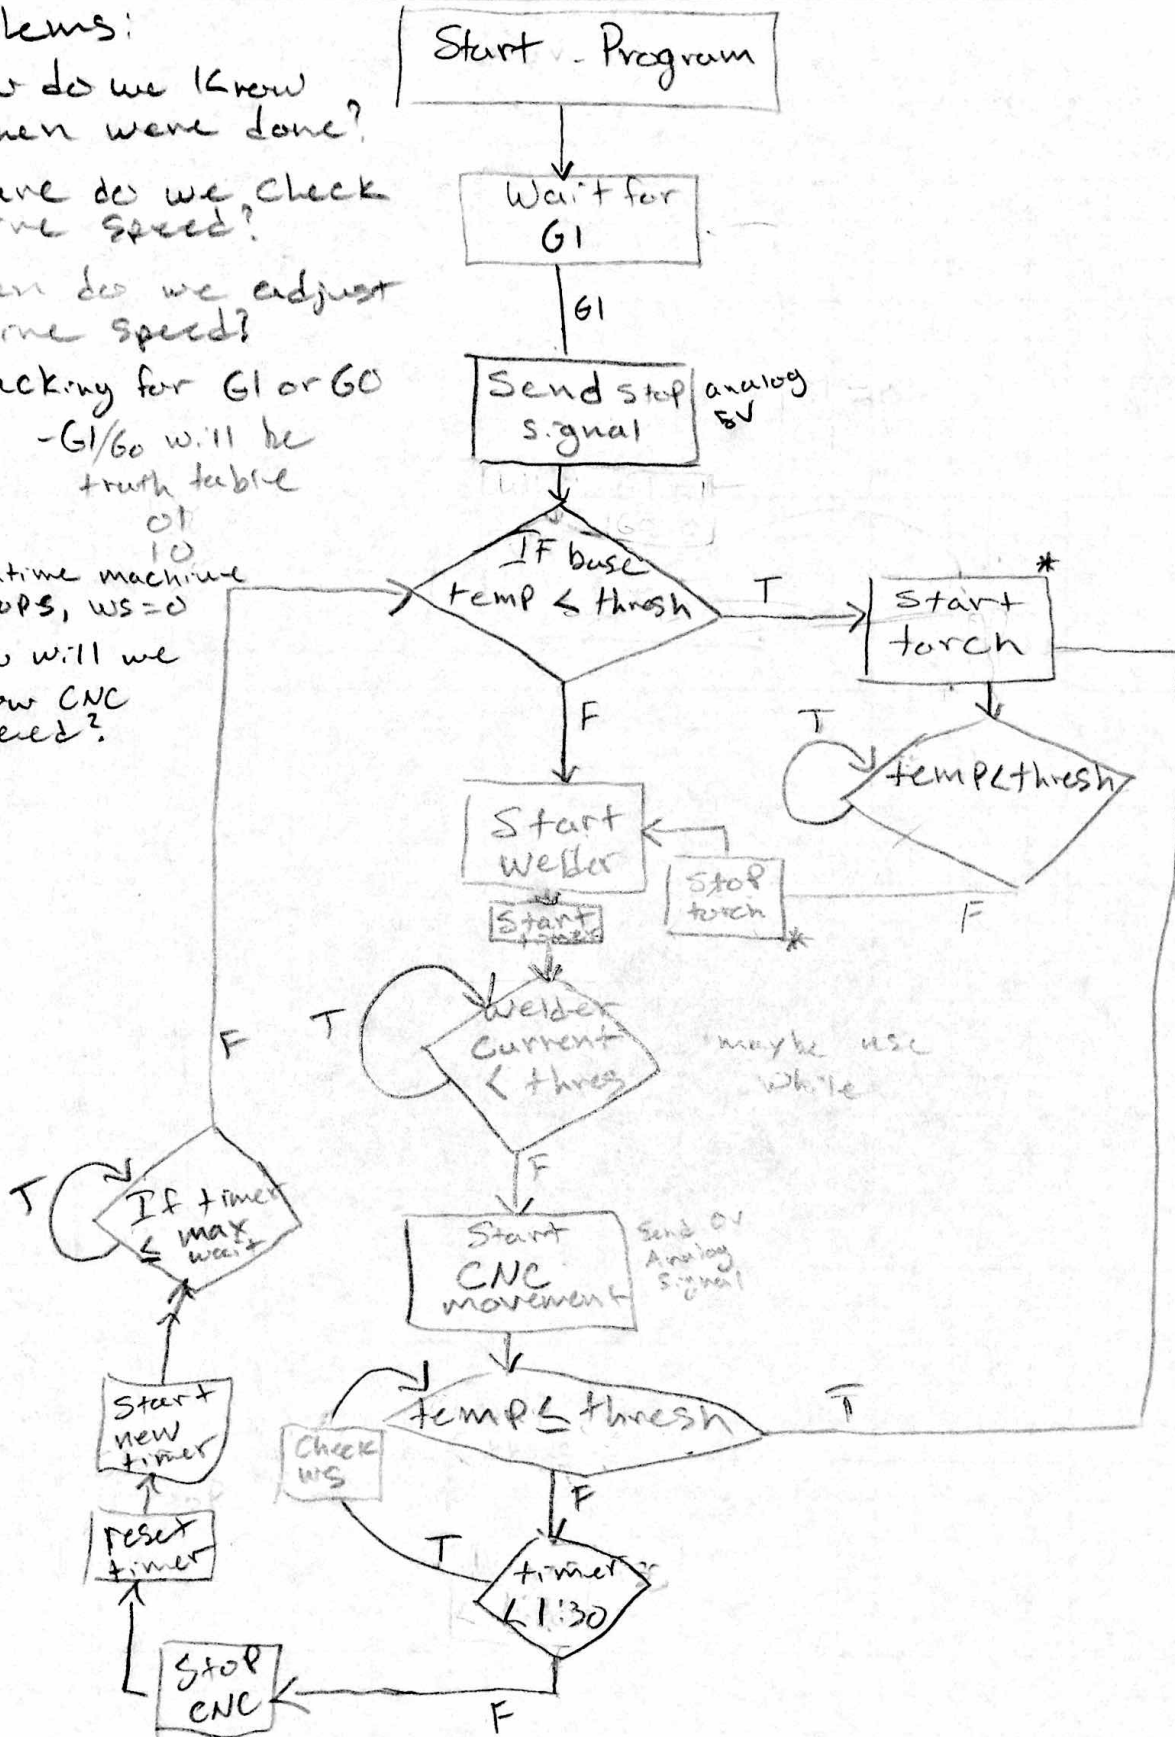 lems:
do we know
en were done?
do we check
speed?
do we adjust
speed?
cking for G1 or G0
-G1/G0 will be
truth table
01
10
time machine
ops, ws=0
will we
CNC
Start Program
Wait for
G1
G1
Send stop
signal
analog
5V
If base
temp ≤ thresh
T
F
*
Start
torch
T
temp<thresh
F
Stop
torch
*
Start
welder
Start
timer
T
welder
current
< thres
maybe use
while
F
Start
CNC
movement
Send 0V
Analog
Signal
temp ≤ thresh
T
F
Check
WS
T
timer
<1:30
F
Stop
CNC
reset
timer
Start
new
timer
T
If timer
≤ max
wait
F